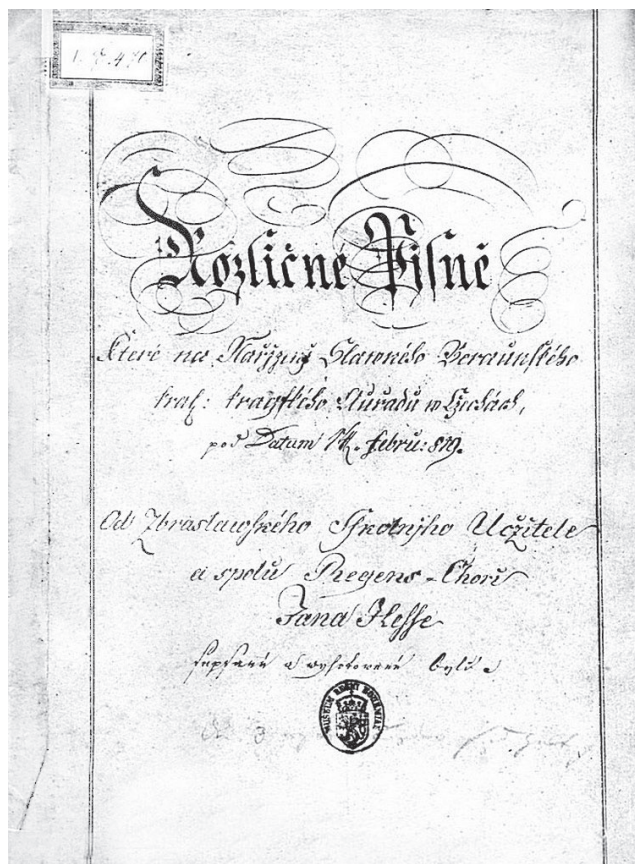 Rozličné Pisně
Které na Nařjzený Slawného Beraunského
kral: kraygského Auřadu w Czechách,
pod Datum 14. febru: 819.
Od Zbraslawského Sskolnjho Učzitele
a spolu Regens-Chori
Jana Hesse
sepsané a wyhotowené byli
MUSEUM REGNI BOHEMIAE